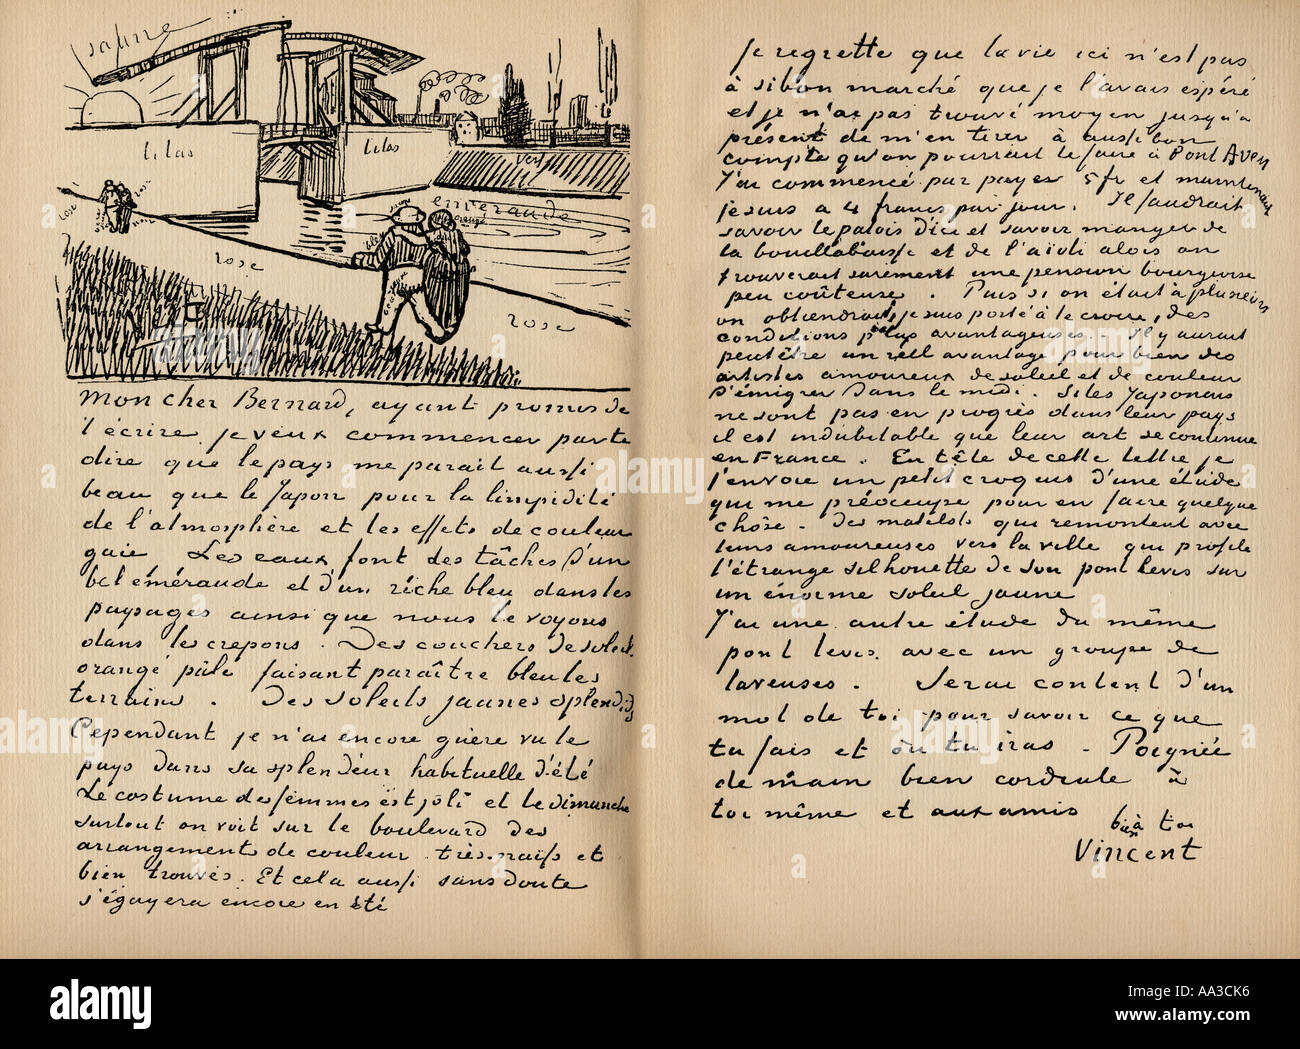 jaune
lilas
lilas
vert
emeraude
orangé
rose
rose
rose
mon cher Bernard, ayant promis de
t'écrire je veux commencer par te
dire que le pays me parait aussi
beau que le Japon pour la limpidité
de l'atmosphère et les effets de couleur
gaie Les eaux font des tâches d'un
bel eméraude et d'un riche bleu dans les
paysages ainsi que nous le voyons
dans les crepons. Des couchers de soleil
orangé pâle faisant paraître bleu les
terrains. Des soleils jaunes splendides
Cependant je n'ai encore guère vu le
pays dans sa splendeur habituelle d'été
Le costume des femmes est joli et le dimanche
surtout on voit sur le boulevard des
arrangements de couleur très naïfs et
bien trouvés. Et cela aussi sans doute
s'égayera encore en été
Je regrette que la vie ici n'est pas
à si bon marché que je l'avais espéré
et je n'ai pas trouvé moyen jusqu'à
présent de m'en tirer à aussi bon
compte qu'on pourrait le faire à Pont Aven
J'ai commencé par payer 5 fr et maintenant
je suis à 4 francs par jour. Il faudrait
savoir le patois d'ici et savoir manger de
la bouillabaisse et de l'aïoli alors on
trouverait surement une pension bourgeoise
peu coûteuse. Puis si on était à plusieurs
on obtiendrait, je suis porté à le croire, des
conditions plus avantageuses. Il y aurait
peut être un réel avantage pour bien des
artistes amoureux de soleil et de couleur
d'émigrer dans le midi. Si les Japonais
ne sont pas en progrès dans leur pays
il est indubitable que leur art se continue
en France. En tête de cette lettre je
t'envoie un petit croquis d'une étude
qui me préoccupe pour en faire quelque
chôse - Des matelots qui remontent avec
leurs amoureuses vers la ville qui profile
l'étrange silhouette de son pont levis sur
un énorme soleil jaune
J'ai une autre étude du même
pont levis avec un groupe de
laveuses. Serai content d'un
mot de toi pour savoir ce que
tu fais et où tu iras - Poignée
de main bien cordiale à
toi même et aux amis
bien à toi
Vincent
alamy
Image ID: AA3CK6
www.alamy.com